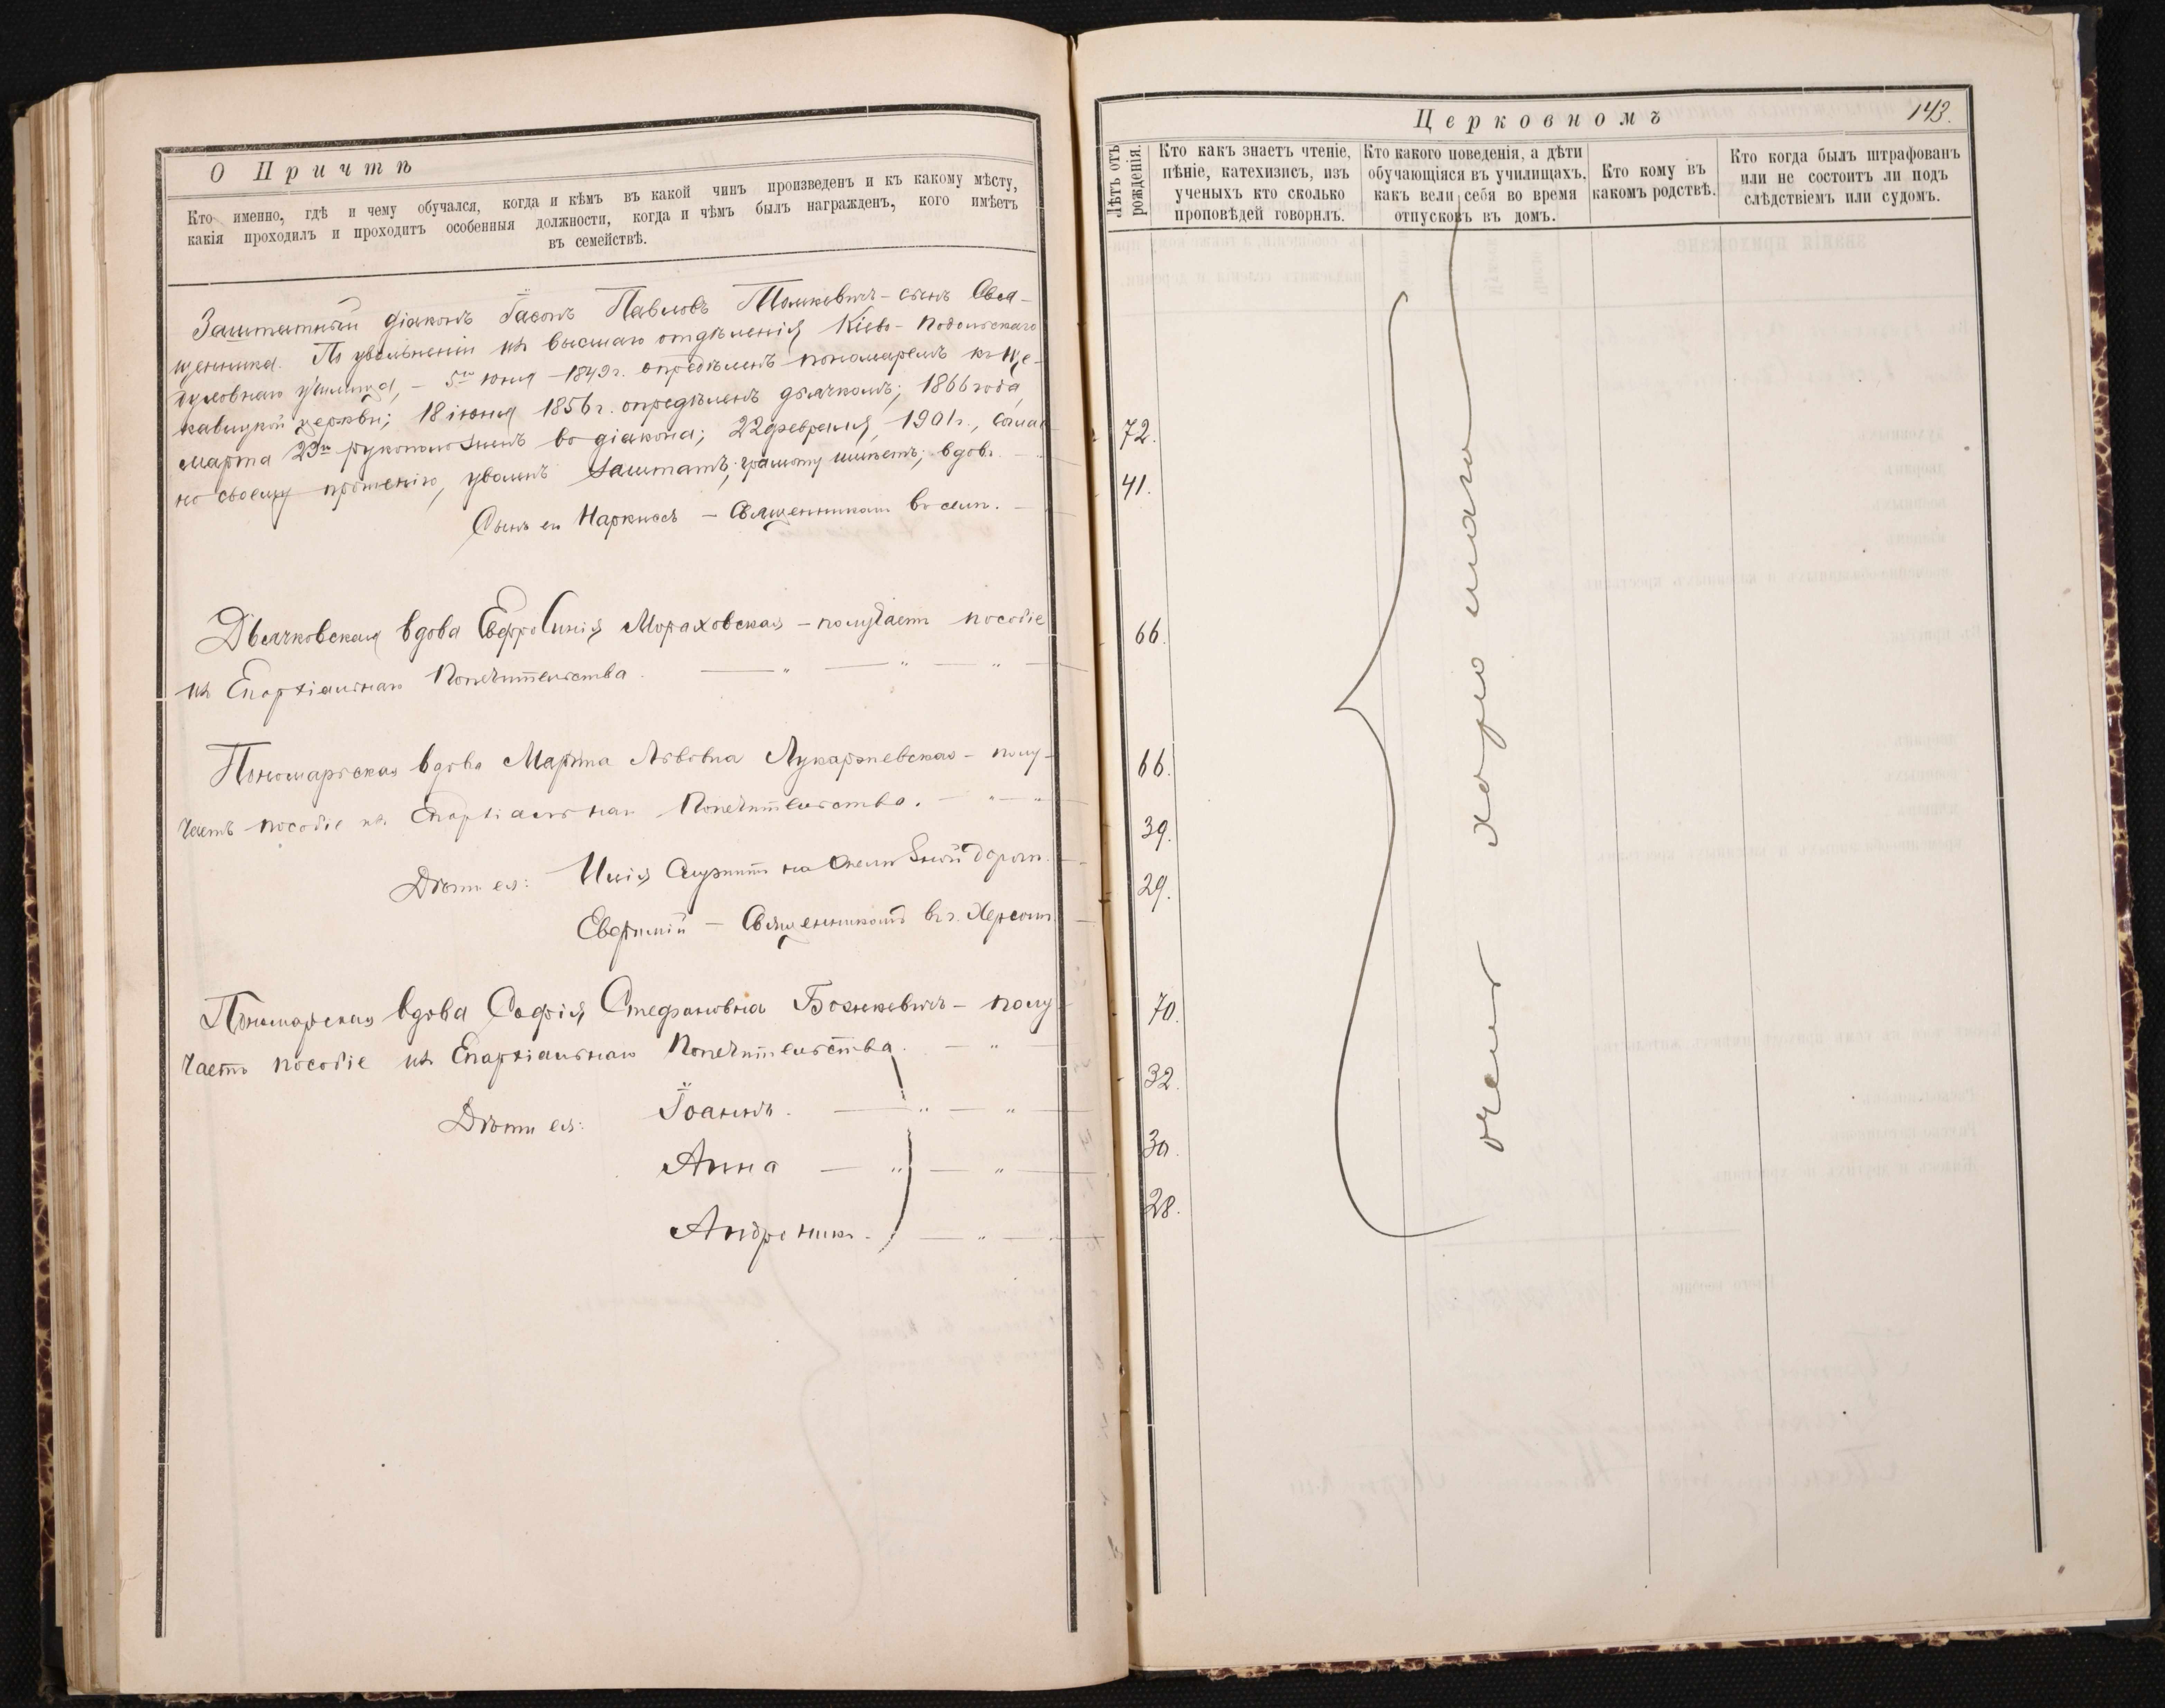 О Причтѣ
Кто именно, гдѣ и чему обучался, когда и кѣмъ въ какой чинъ произведенъ и къ какому мѣсту,
какія проходилъ и проходитъ особенныя должности, когда и чѣмъ былъ награжденъ, кого имѣетъ
въ семействѣ.
Заштатный діаконъ Іасонъ Павловъ Томкевичъ – сынъ Свя-
щенника. По увольненіи изъ высшаго отдѣленія Кіево-Подольскаго
духовнаго училища, – 5го юня – 1849 г. опредѣленъ пономаремъ къ
кавицкой церкви; 18 іюня 1856 г. опредѣленъ дьячкомъ; 1866 года
марта 29го рукоположенъ во діакона; 22 февраля, 1901 г., соглас
но своему прошенію, уволенъ заштатъ; грамоту имѣетъ; вдов.
Сынъ его Наркиссъ – Священникомъ въ
Дьячковская вдова Евфросинія Мораховская – получаетъ пособіе
изъ Епархіальнаго Попечительства.
Пономарская вдова Марѳа Львовна Лукаржевская – полу-
чаетъ пособіе изъ Епархіальнаго Попечительства.
Дѣти ея: Илія Служитъ на желѣзной дорогѣ.
Евфимій – Священникомъ въ г. Херсонѣ.
Пономарская вдова Софія Стефановна Божкевичъ – полу
чаетъ пособіе изъ Епархіальнаго Попечительства.
Дѣти ея: Іоаннъ.
Анна
Андроникъ.
Церковномъ
143.
Лѣтъ отъ рожденія.
Кто какъ знаетъ чтеніе, пѣніе, катехизисъ, изъ ученыхъ кто сколько проповѣдей говорилъ.
Кто какого поведенія, а дѣти обучающіяся въ училищахъ, какъ вели себя во время отпусковъ въ домъ.
Кто кому въ какомъ родствѣ.
Кто когда былъ штрафованъ или не состоитъ ли подъ слѣдствіемъ или судомъ.
72.
41.
66.
66.
39.
29.
70.
32.
30.
28.
очень хорошаго